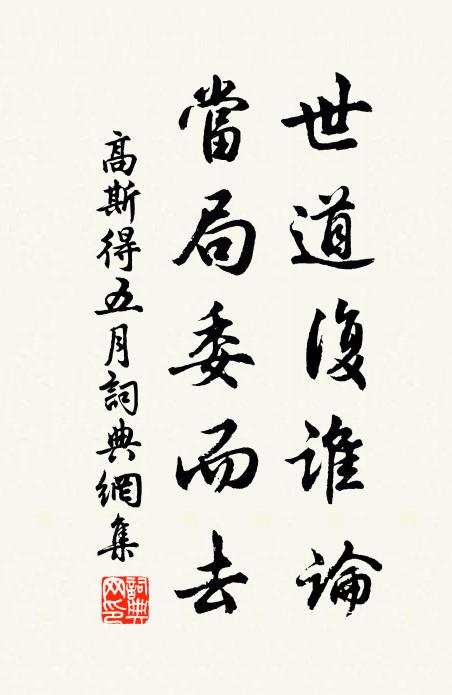 世道復誰論
當局委而去
高斯得五月詞典網集
詞典網印